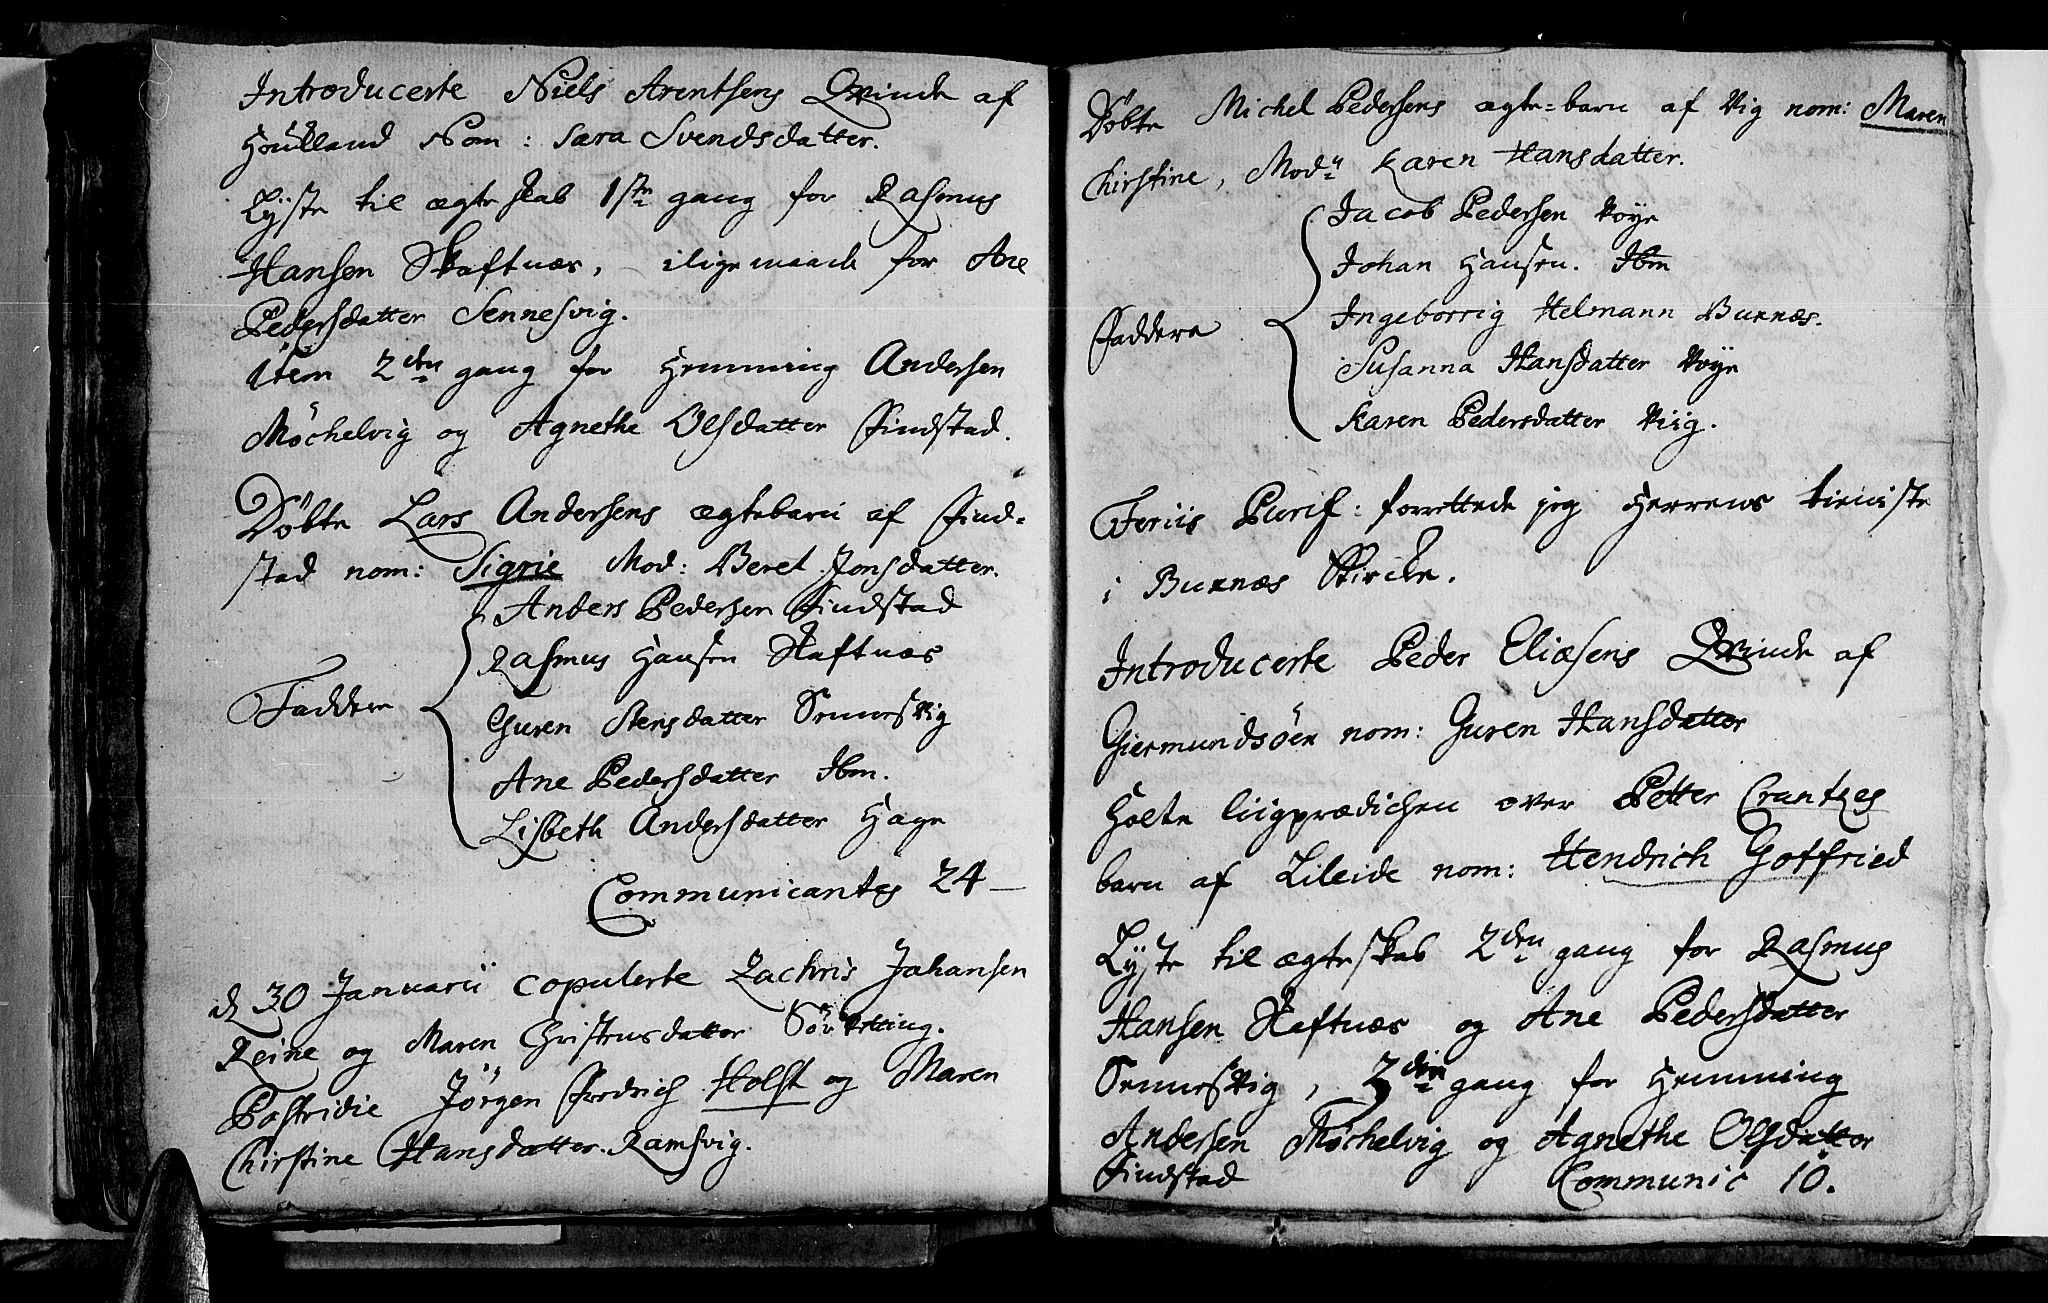 Introducerte Niels Arentsens Qvinde af
Houlland Nom: Sara Svendsdatter.
Lyste til ægteskab 1ste gang for Rasmus
Hansen Skaftnæs, iligemaade for Ane
Pedersdatter Sennesvig.
Item 2den gang for Hemming Andersen
Møchelvig og Agnethe Olsdatter Findstad.
Döbte Lars Andersens ægtebarn af Find-
stad nom: Sigrie Mod: Beret Jonsdatter.
Anders Pedersen Findstad
Rasmus Hansen Skaftnæs
Faddere
Guren Stensdatter Sennesvig
Ane Pedersdatter Ibm.
Lisbeth Andersdatter Hage
Communicantes 24
d 30 Januarii copulerte Zachris Johansen
Reine og Maren Christensdatter
Postridie Jörgen Fredrich Holst og Maren
Chirstine Hansdatter Ramsvig.
Döbte Michel Pedersens ægte-barn af Vig nom: Maren
Chirstine, Modr Karen Hansdatter.
Jacob Pedersen Voye
Johan Hansen. Ibm
Faddere
Ingeborrig Helmann Buxnæs.
Susanna Hansdatter Voye
Karen Pedersdatter Viig.
Feriis Purif: forrettede jeg Herrens tieniste
i Buxnæs Kircke.
Introducerte Peder Eliæsens Qvinde af
Giermundsöen nom: Guren Hansdatter
Holte liigprædichen over Petter Crantzes
barn af Lileide nom: Hendrich Gotfried
Lyste til ægteskab 2den gang for Rasmus
Hansen Skaftnæs og Ane Pedersdatter
Sennesvig, 3die gang for Hemming
Andersen Møchelvig og Agnethe Olsdatter
Findstad Communic 10.